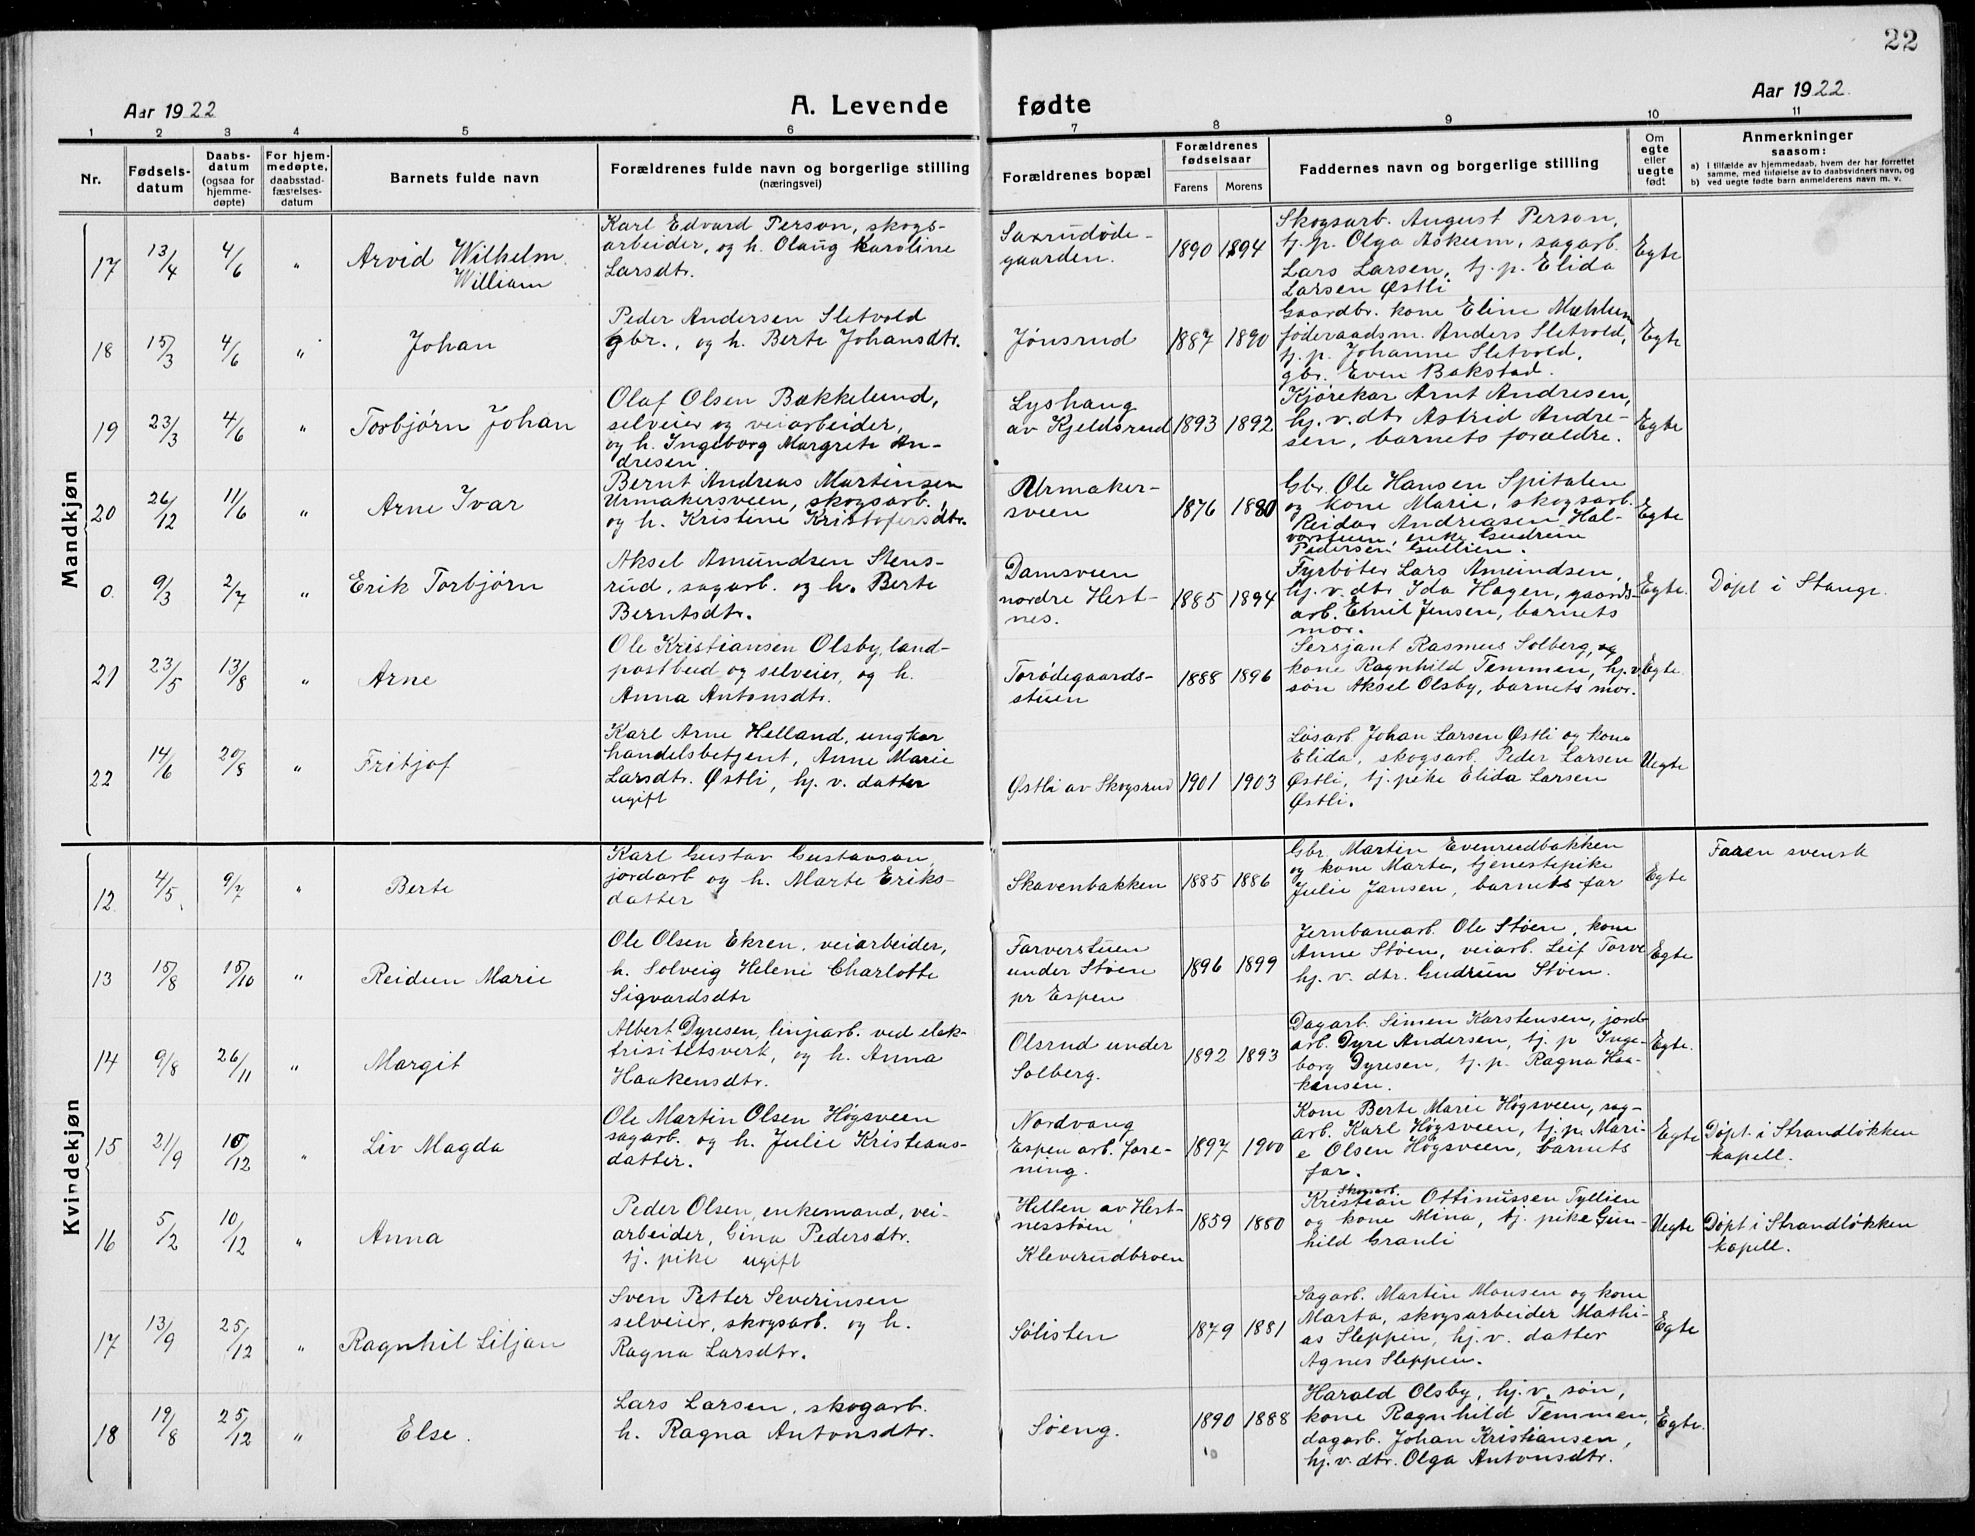 22
Aar 1922
A. Levende
fødte
Aar 1922
1 2 3 4 5 6 7 8 9 10 11
Nr.
Fødsels-
datum
Daabs-
datum
(ogsaa for
hjemme-
døpte)
For hjem-
medøpte,
daabsstad-
fæstelses-
datum
Barnets fulde navn
Forældrenes fulde navn og borgerlige stilling
(næringsvei)
Forældrenes bopæl
Forældrenes
fødselsaar
Farens Morens
Faddernes navn og borgerlige stilling
Om
egte
eller
uegte
født
Anmerkninger
saasom:
a) I tilfælde av hjemmedaab, hvem der har forrettet
samme, med tilføielse av to daabsvidners navn, og
b) ved uegte fødte barn anmelderens navn m. v.
Mandkjøn
17 13/4 4/6 "
Arvid Wilhelm
William
Karl Edvard Person, skogs-
arbeider, og h. Olaug Karoline
Larsdtr.
Saxrudøde-
gaarden.
1890 1894
Skogsarb. August Person,
tj. p. Olga Askum, sagarb.
Lars Larsen, tj. p. Elida
Larsen Østli
Egte
18 15/3 4/6 "
Johan
Peder Andersen Sletvold
gbr., og h. Berte Johansdtr.
Jønsrud
1887 1890
Gaardbr. kone Eline Mæhlum
føderaadsm. Anders Sletvold,
tj. p. Johanne Sletvold,
gbr. Even Bakstad.
Egte
19 23/3 4/6 "
Torbjørn Johan
Olaf Olsen Bækkelund,
selveier og veiarbeider,
og h. Ingeborg Margrete An-
dresen.
Lyshaug
av Kjeldsrud
1893 1892
Kjørekar Arnt Andresen,
hj. v. dtr Astrid Andre-
sen, barnets forældre.
Egte
20 26/12 11/6 "
Arne Ivar
Bernt Andreas Martinsen
Urmakersveen, skogsarb.,
og h. Kristine Kristofersdtr.
Urmaker-
sveen
1876 1880
Gbr. Ole Hansen Spitalen
og kone Marie, skogsarb.
Reidar Andreasen Hal-
vorstuen, enke Gudrun
Pedersen Gullien.
Egte
0. 9/3 2/7 "
Erik Torbjørn
Aksel Amundsen Stens-
rud, sagarb. og h. Berte
Berntsdtr.
Damsveen
nordre Hest-
nes.
1885 1894
Fyrbøter Lars Amundsen,
hj. v. dtr Ida Hagen, gaards-
arb. Emil Jensen, barnets
mor.
Egte.
Døpt i Stange.
21 23/5 13/8 "
Arne
Ole Kristiansen Olsby, land-
postbud og selveier, og h.
Anna Antonsdtr.
Torødegaards-
stuen
1888 1896
Sersjant Rasmus Solberg, og
kone Ragnhild Temmen, hj. v
søn Aksel Olsby, barnets mor.
Egte.
22 14/6 20/8 "
Fritjof
Karl Arne Helland, ungkar
handelsbetjent, Anne Marie
Larsdtr. Østli, hj. v. datter
ugift
Østli av Skogsrud
1901 1903
Løsarb. Johan Larsen Østli og kone
Elida, skogsarb. Peder Larsen
Østli, tj. pike Elida Larsen
Østli.
Uegte
Kvindekjøn
12 4/5 9/7 "
Berte
Karl Gustav Gustavson,
jordarb og h. Marte Eriks-
datter
Skavenbakken
1885 1886
Gbr. Martin Evenrudbakken
og kone Marte, tjenestepike
Julie Jansen, barnets far
Egte
Faren svensk
13 15/8 15/10 "
Reidun Marie
Ole Olsen Ekren, veiarbeider,
h. Solveig Helene Charlotte
Sigvardsdtr
Farverstuen
under Støen
pr Espen
1896 1899
Jernbanearb. Ole Støen, kone
Anne Støen, veiarb. Leif Torve
hj. v. dtr. Gudrun Støen.
Egte
14 9/8 26/11 "
Margit
Albert Dyresen, linjiarb. ved elek-
trisitetsverk, og h. Anna
Haakensdtr.
Olsrud under
Solberg.
1892 1893
Dagarb. Simen Karstensen, jord-
arb. Dyre Andersen, tj. p Inge-
borg Dyresen, tj. p. Ragna Haa-
kensen.
Egte.
15 21/9 10/12 "
Liv Magda
Ole Martin Olsen Høgsveen
sagarb. og h. Julie Kristians-
datter.
Nordvang
Espen arb. fore-
ning.
1897 1900
Kone Berte Marie Høgsveen, sag-
arb. Karl Høgsveen, tj. p. Mari-
e Olsen Høgsveen, barnets
far.
Egte
Døpt i Strandløkken
kapell.
16 5/2 10/12 "
Anna
Peder Olsen, enkemand, vei-
arbeider, Gina Pedersdtr.
tj. pike ugift
Hellen av Hest-
nesstøen
Kleverudbroen
1859 1880
Skogsarb.
Kristian Ottinussen Tyllien
og kone Mina, tj. pike Gun-
hild Granli
Uegte
Døpt i Strandløkken
kapell.
17 13/9 25/12 "
Ragnhil Liljan
Sven Petter Severinsen
selveier, skogsarb. og h.
Ragna Larsdtr.
Sølisten
1879 1881
Sagarb. Martin Monsen og kone
Marta, skogsarbeider Mathi-
as Sleppen, hj. v. datter
Agnes Sleppen.
Egte
18 19/8 25/12 "
Else.
Lars Larsen, skogarb.
h. Ragna Antonsdtr.
Søeng.
1890 1888
Harald Olsby, hj. v. søn,
kone Ragnhild Temmen,
dagarb. Johan Kristiansen,
hj. v. dtr. Olga Antonsdtr.
Egte.